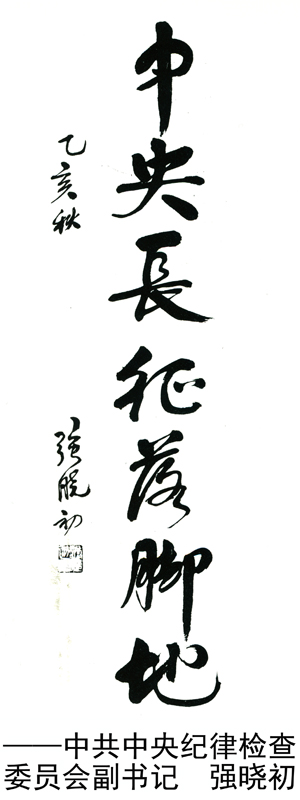 中央長征落脚地
乙亥秋
强晓初
——中共中央纪律检查
委员会副书记　强晓初